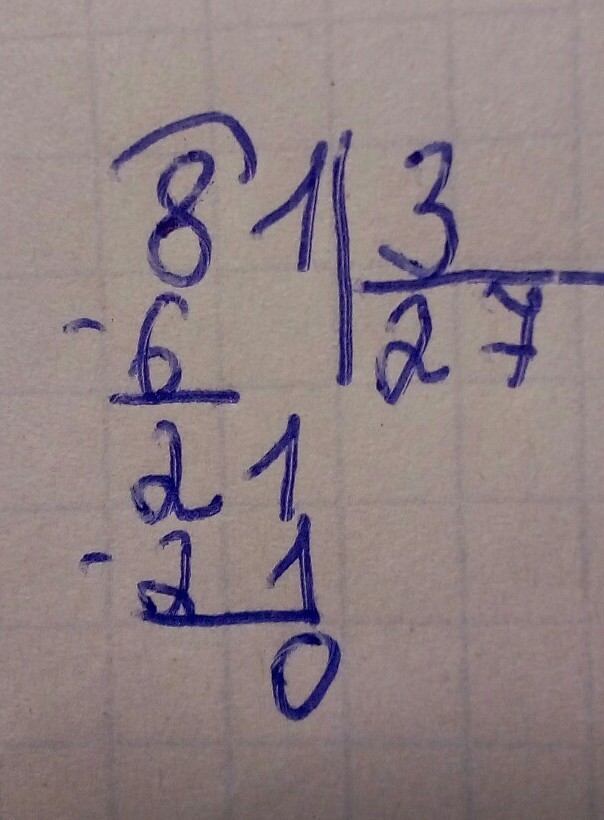 81 3
-6 27
21
-21
0